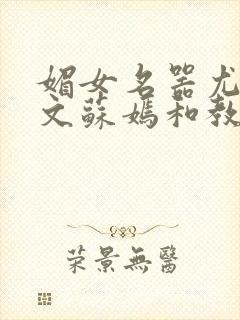 媚女名器尤
文蘇媽和教
荣景無醫